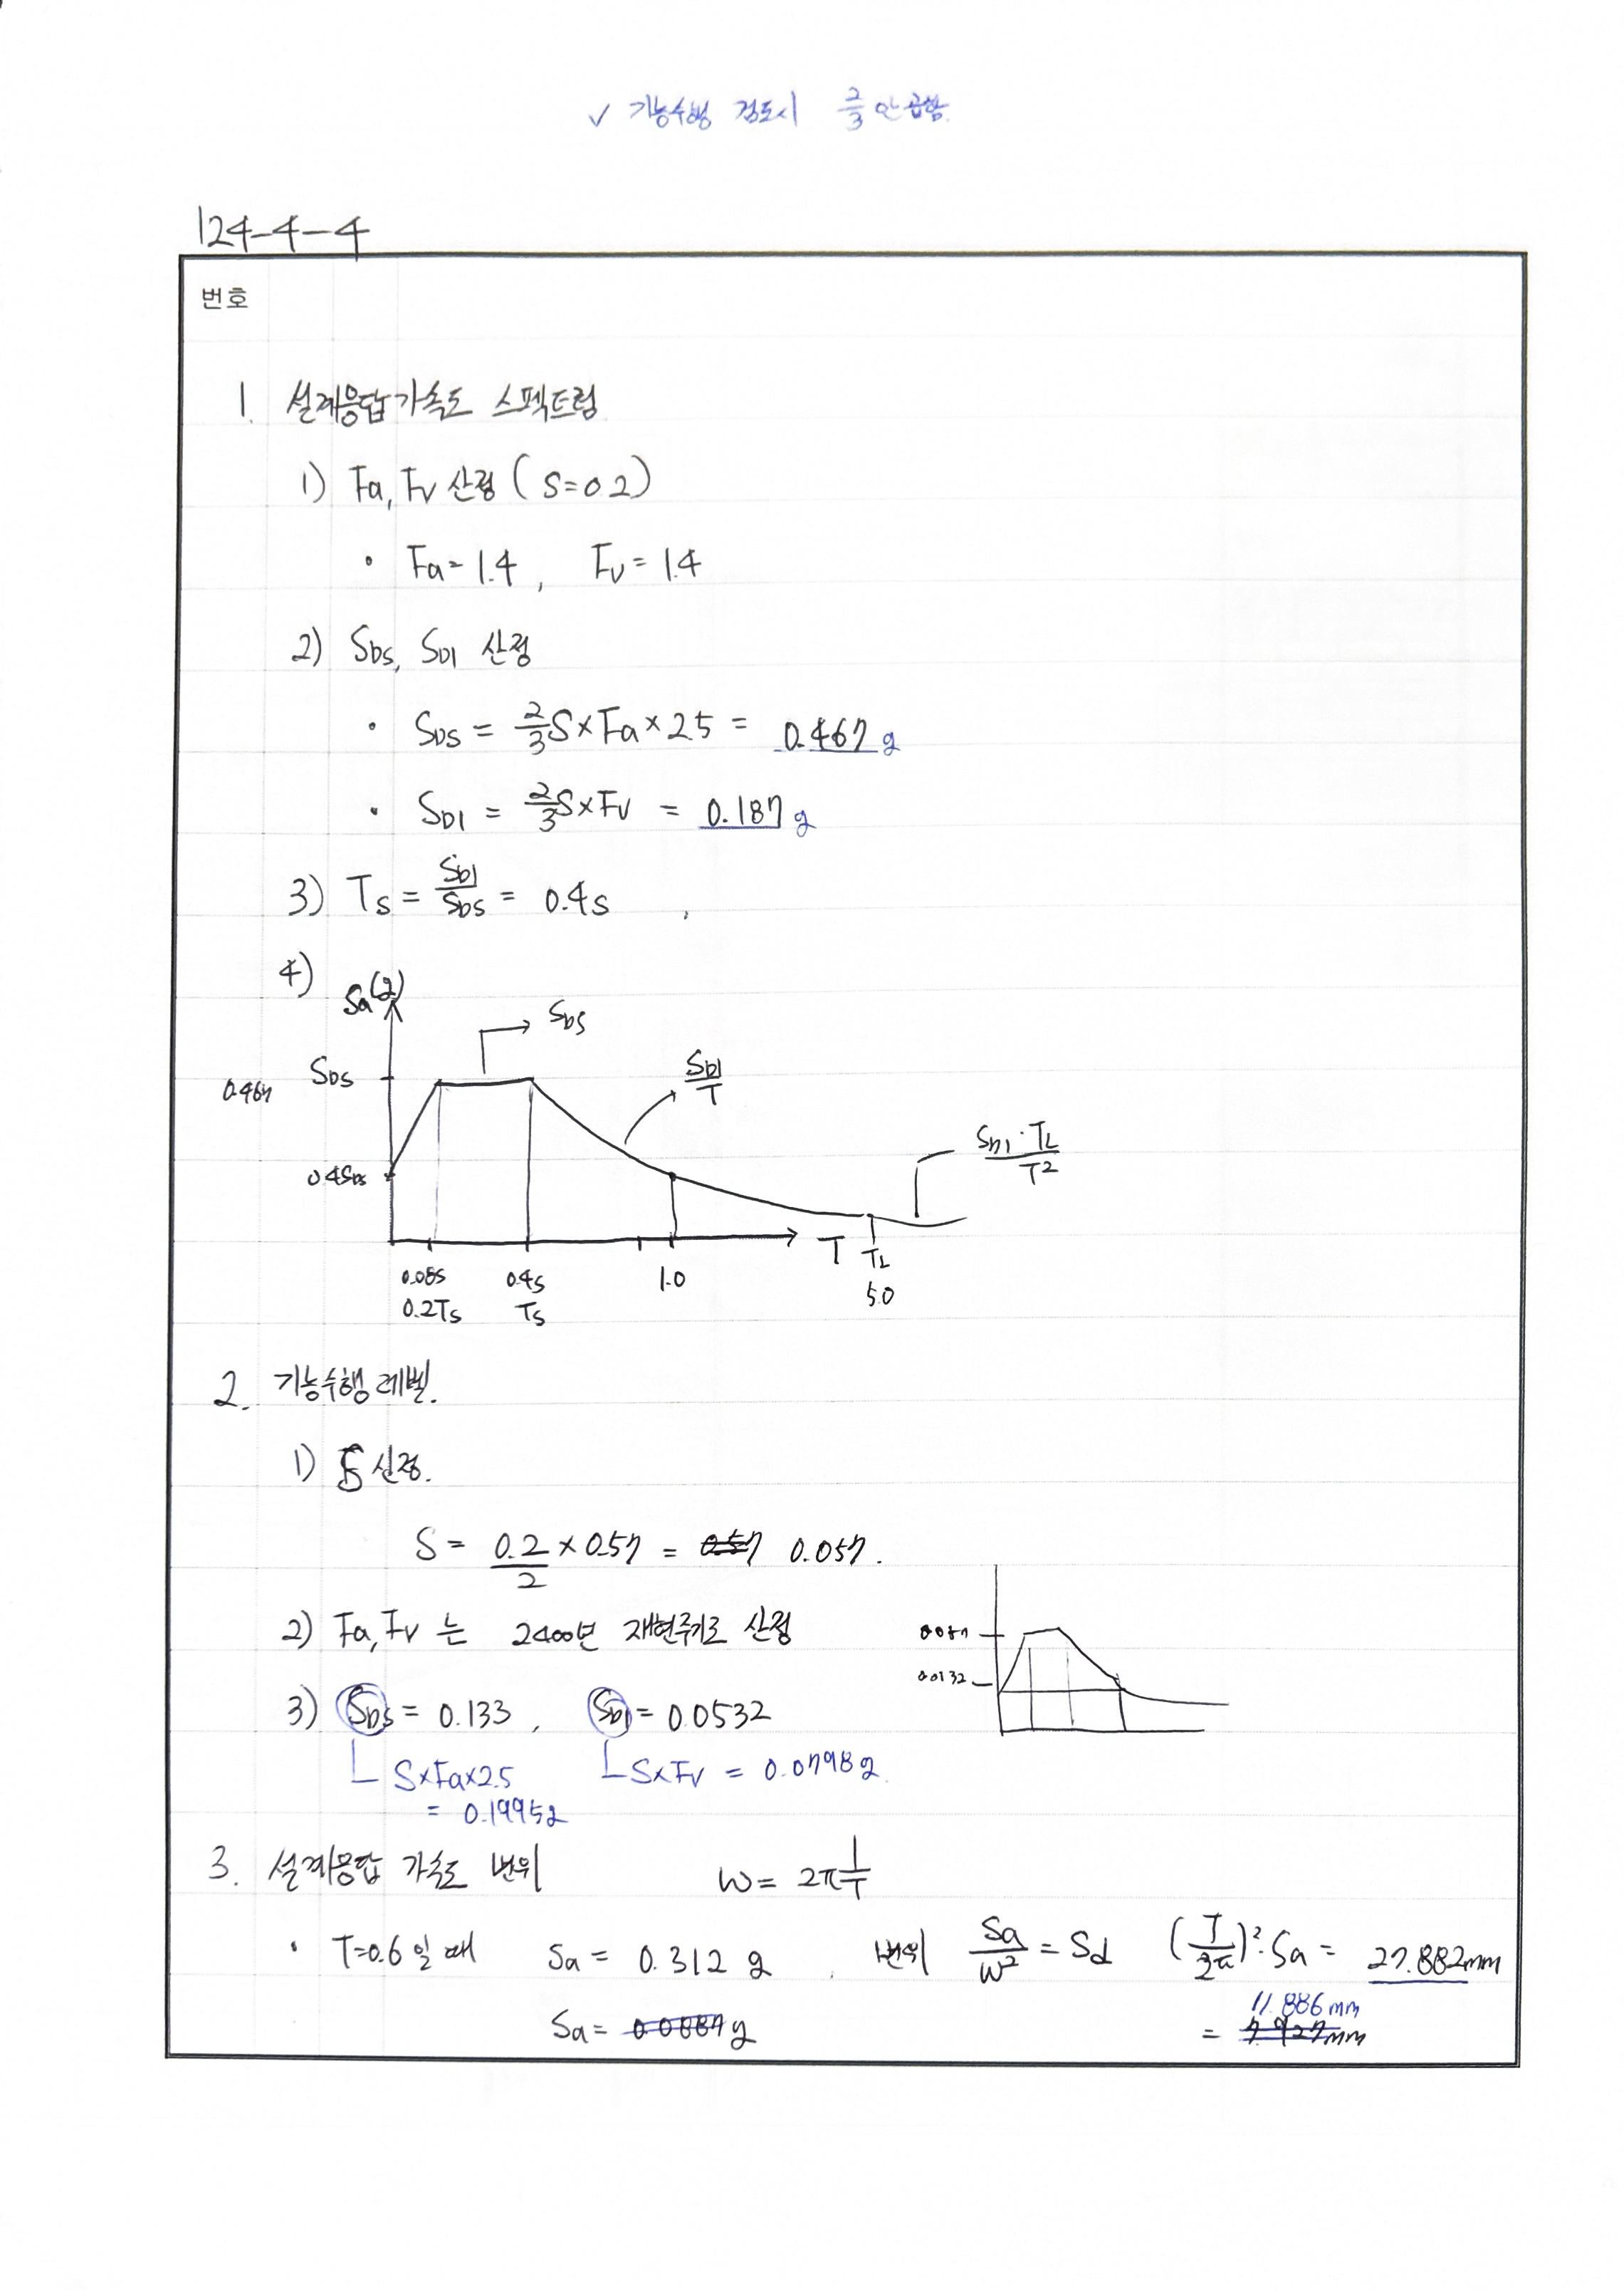 ✓ 기능수행 검토시 2/3 안곱함.
124-4-4
번호
1. 설계응답가속도 스펙트럼
1) Fa, Fv 산정 ( S=0.2 )
• Fa = 1.4 , Fv = 1.4
2) SDS, SD1 산정
• SDS = 2/3 S × Fa × 2.5 = 0.467 g
• SD1 = 2/3 S × Fv = 0.187 g
3) Ts = SD1/SDS = 0.4s
4) Sa(g)
SDS
SD1/T
SD1·TL/T²
0.467 SDS
0.4SDS
0.08s 0.4s 1.0 T TL
0.2Ts Ts 5.0
2. 기능수행 레벨.
1) S 산정.
S = 0.2/2 × 0.57 = 0.057.
2) Fa, Fv 는 2400년 재현주기로 산정
0.0132
3) SDS = 0.133 , SD1 = 0.0532
S×Fa×2.5 S×Fv = 0.0798g
= 0.1995g
3. 설계응답 가속도 변위 W = 2π 1/T
• T=0.6 일 때 Sa = 0.312 g , 변위 Sa/W² = Sd (T/2π)²·Sa = 27.882mm
11.886mm
Sa = g = mm